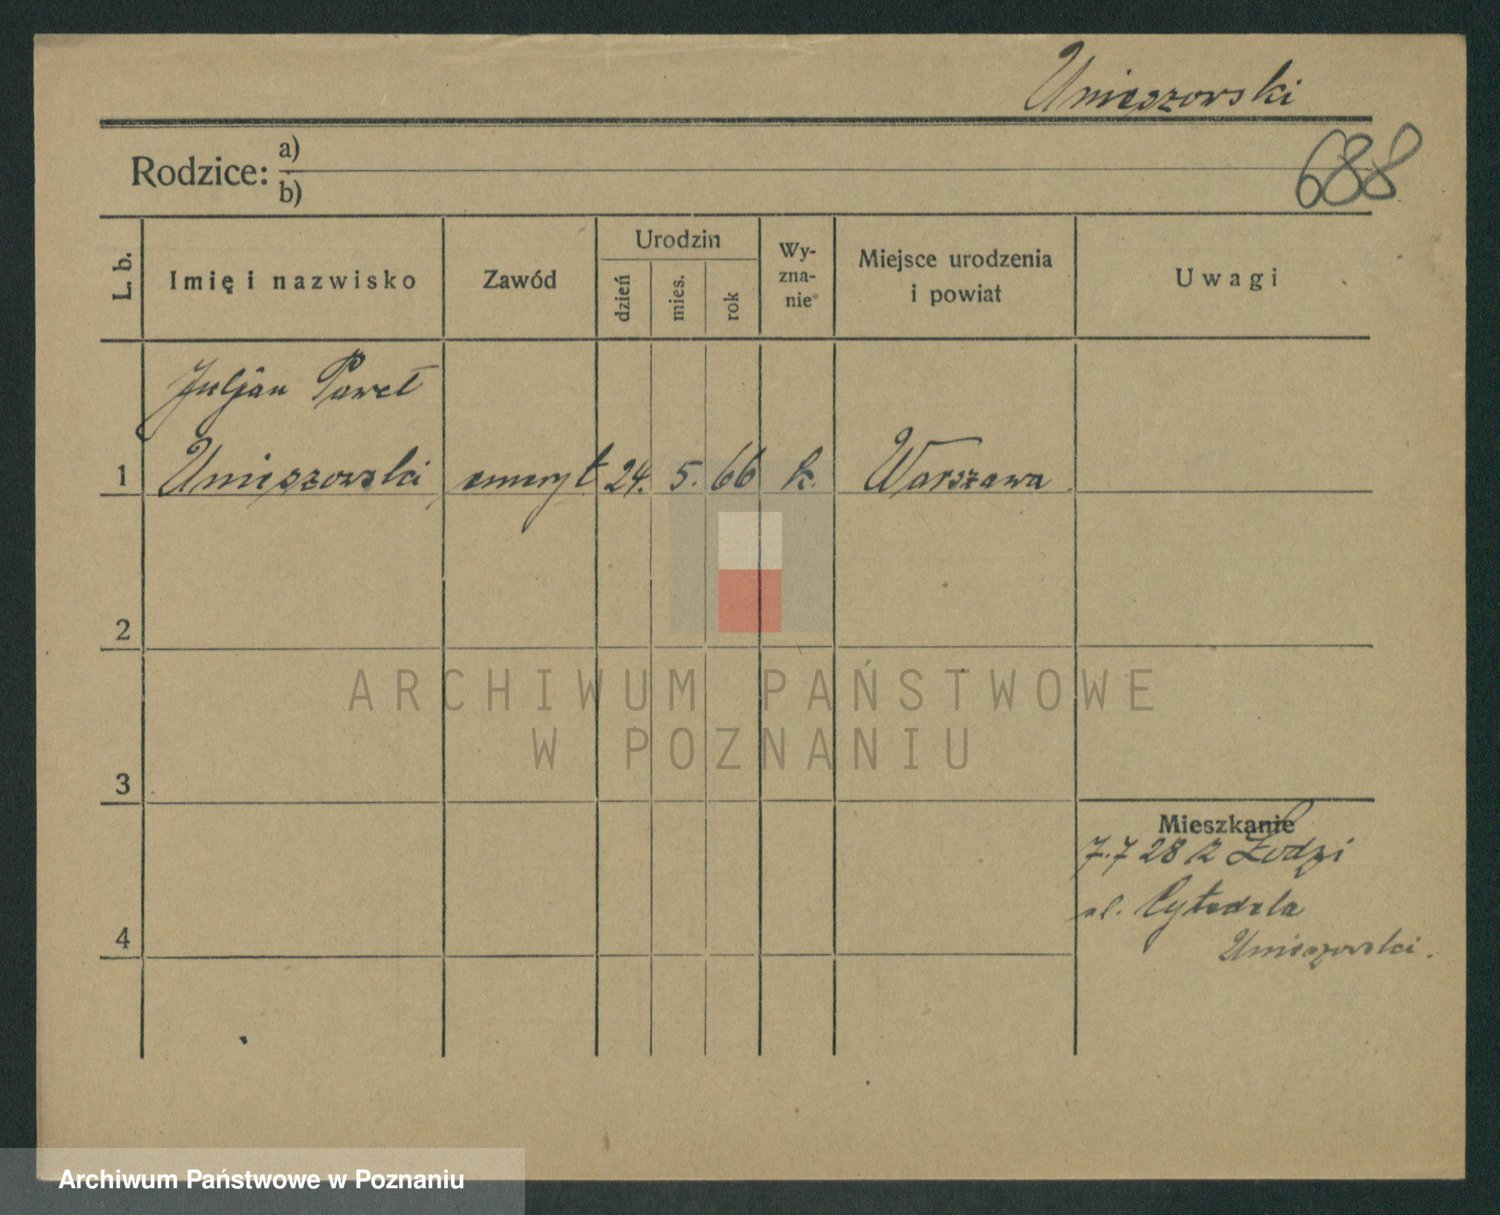 Unieszowski
688
Rodzice: a)
b)
L. b.
Imię i nazwisko
Zawód
Urodzin
dzień
mies.
rok
Wy-
zna-
nie
Miejsce urodzenia
i powiat
Uwagi
Juljan Paweł
1 Unieszowski emeryt 24. 5. 66 k. Warszawa
2
ARCHIWUM PAŃSTWOWE
W POZNANIU
3
Mieszkanie
7.7 28 z Łodzi
ul. Cytadela
Unieszowski.
4
Archiwum Państwowe w Poznaniu